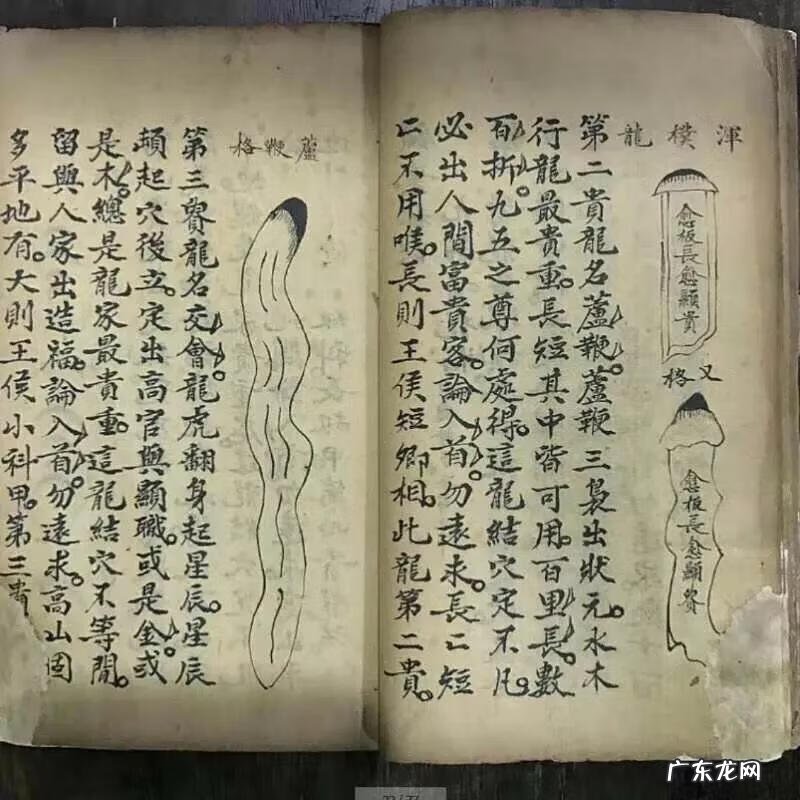 渾樸龍
愈板長愈顯貴
又格
愈板長愈顯貴
第二貴龍名蘆鞭。蘆鞭三裊出狀元。水木
行龍最貴重。長短其中皆可用。百里長數
百折。九五之尊何處得。這龍結穴定不凡。
必出人間富貴客。論入首。勿遠求。長二短
二不用喉。長則王侯短卿相。此龍第二貴。
蘆鞭格
第三貴龍名交會。龍虎翻身起星辰。星辰
頓起穴後立。定出高官與顯職。或是金。或
是木。總是龍家最貴重。這龍結穴不等閒。
留與人家出造福。論入首。勿遠求。高山固
多平地有。大則王侯小科甲。第三貴
广东龙网